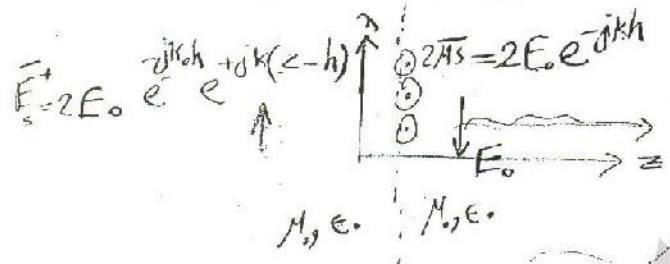 x
Ēs⁺=2E₀ e^-jk₀h e^+jk(z-h)
2M̄s=2E₀e^-jkh
E₀
z
μ₀, ε₀
μ₀, ε₀